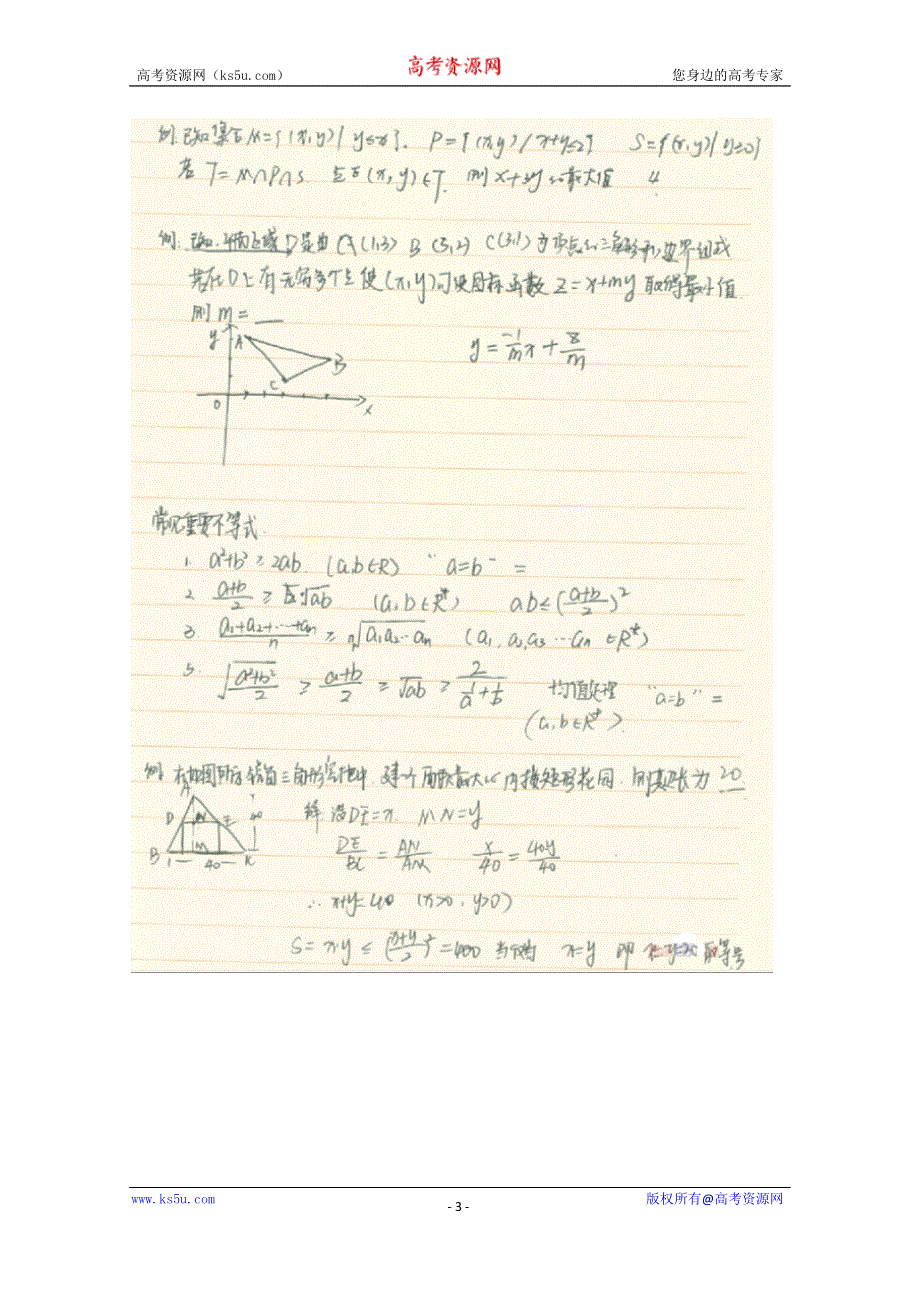 高考资源网
高考资源网（ks5u.com） 您身边的高考专家
例. 已知集合 M={(x,y)| y≤x}, P={(x,y)/x+y≤2} S={(x,y)| y≥0}
若 T=M∩P∩S. 点在(x,y)∈T. 则 x+2y 的最大值 4
例. 已知, 平面区域 D是由 A(1,3) B(5,2) C(3,1)为顶点的三角形和边界组成
若在D上有无穷多个点使(x,y)可使目标函数 z=x+my 取得最小值.
则 m= __
y
A
B
C
O
x
y = -1/m x + z/m
常见重要不等式
1. a²+b²≥2ab. (a,b∈R) "a=b" =
2. a+b/2 ≥ √ab (a,b∈R⁺) ab≤(a+b/2)²
3. a₁+a₂+…+aₙ/n ≥ ⁿ√a₁a₂…aₙ (a₁,a₂,a₃…aₙ∈R⁺)
5. √a²+b²/2 ≥ a+b/2 ≥ √ab ≥ 2/(1/a+1/b) 均值定理 "a=b" =
(a,b∈R⁺)
例. 在如图所示锐角三角形空地中, 建一个面积最大的内接矩形花园, 则其边长为 20
A
D N E 40
M
B 40
解 设DE=x. MN=y
DE/BC = AN/AM x/40 = 40-y/40
∴ x+y=40 (x>0, y>0)
S= x·y ≤ (x+y/2)² =400 当且仅当 x=y 即 取等号
www.ks5u.com - 3 - 版权所有@高考资源网